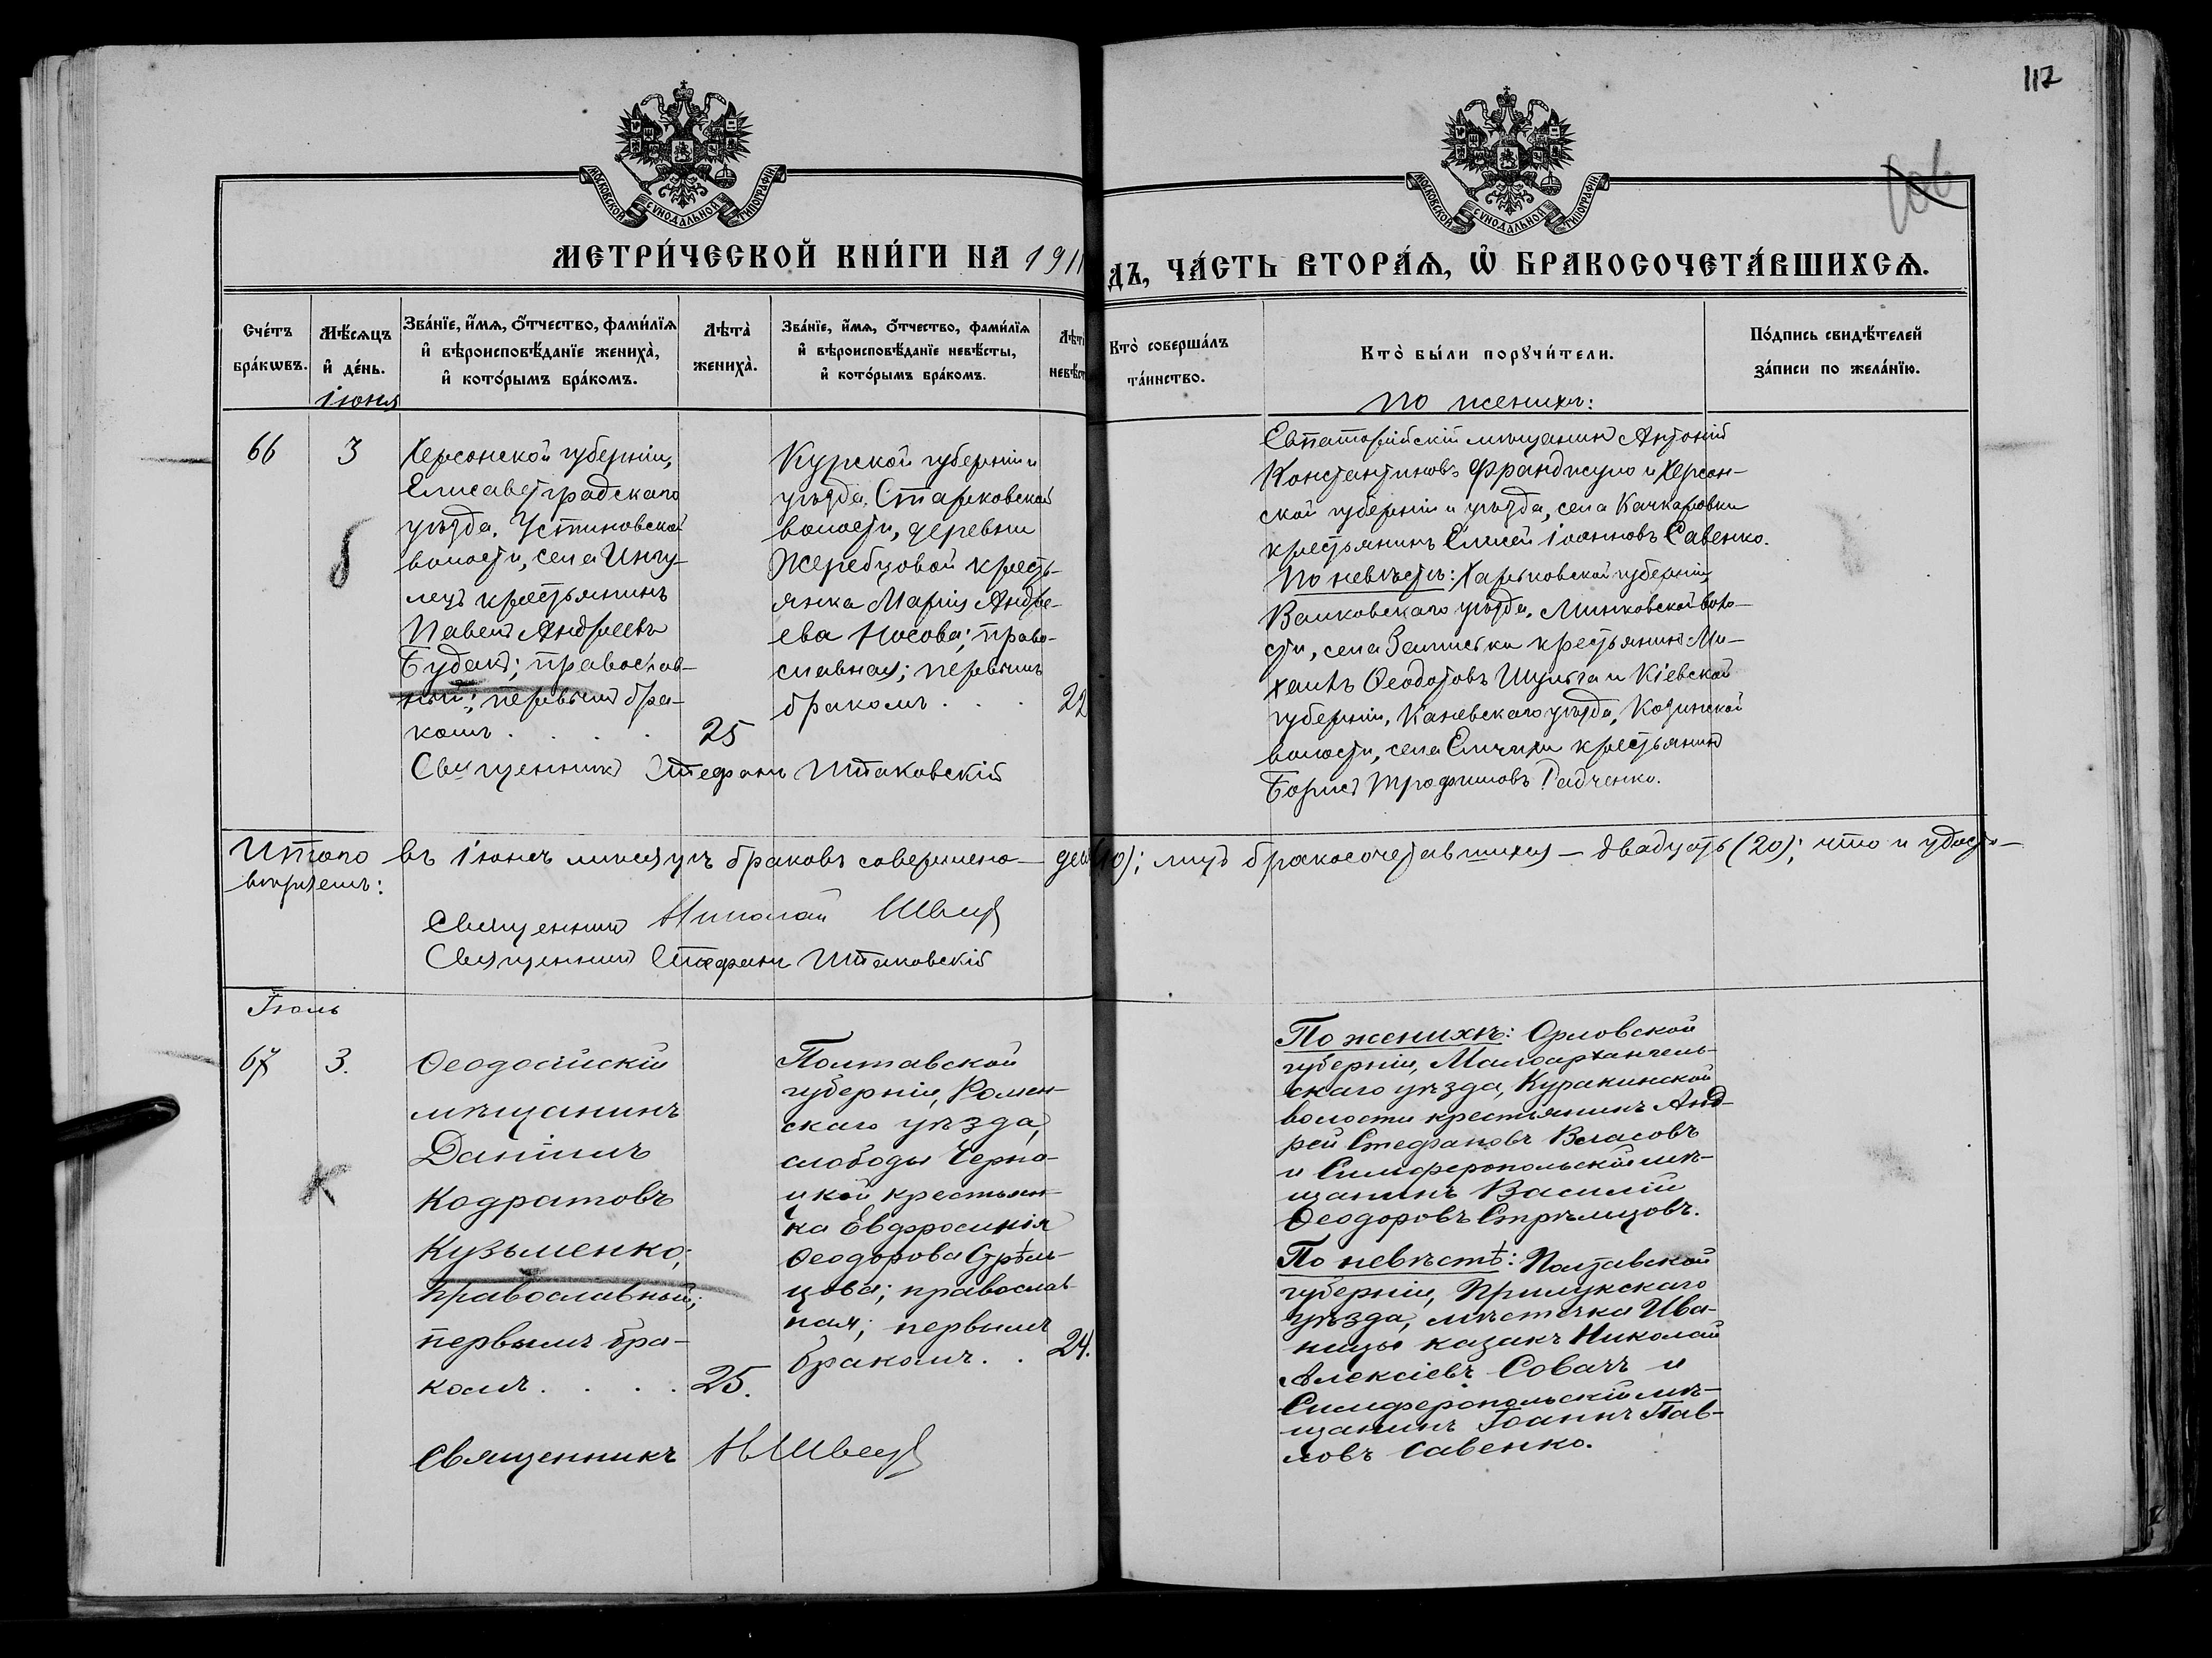 112
106
МОСКОВСКОЙ СѴНОДАЛЬНОЙ ТИПОГРАФІИ
МОСКОВСКОЙ СѴНОДАЛЬНОЙ ТИПОГРАФІИ
МЕТРИ́ЧЕСКОЙ КНИ́ГИ НА 1911
ДЪ, ЧА́СТЬ ВТОРА́Ѧ, Ѡ҆ БРАКОСОЧЕТА́ВШИХСѦ.
Сче́тъ бра́кѡвъ.
Мѣ́сѧцъ и҆ де́нь.
Зва́нїе, и҆́мѧ, ѻ҆́тчество, фами́лїѧ
и҆ вѣроисповѣ́данїе жениха̀,
и҆ кото́рымъ бра́комъ.
Лѣта̀ жениха̀.
Зва́нїе, и҆́мѧ, ѻ҆́тчество, фами́лїѧ
и҆ вѣроисповѣ́данїе невѣ́сты,
и҆ кото́рымъ бра́комъ.
Лѣт
невѣст
Кто̀ соверша́лъ
та́инство.
Кто̀ бы́ли порꙋчи́тели.
По́дпись свидѣ́телей
за́писи по жела́нїю.
іюня
По женихѣ:
66
3
Херсонской губерніи,
Елисаветградскаго
уѣзда, Устиновской
волости, села Ингу-
лецъ крестьянинъ
Павелъ Андреевъ
Будакъ; православ-
ный; первымъ бра-
комъ . . . .
25
Священникъ Стефанъ Штаковскій
Курской губерніи и
уѣзда, Стараковской
волости, деревни
Жеребцовой кресть-
янка Марія Андре-
ева Носова; право-
славная; первымъ
бракомъ . . .
22
Евпаторійскій мѣщанинъ Антоній
Константиновъ Франджуло и Херсон-
ской губерніи и уѣзда, села Качкаровки
крестьянинъ Елисей Іоанновъ Савенко.
По невѣстѣ: Харьковской губерніи
Валковскаго уѣзда, Минковской воло-
сти, села крестьянинъ Ми-
хаилъ Ѳеодотовъ Шульга и Кіевской
губерніи, Каневскаго уѣзда, Козинской
волости, села крестьянинъ
Борисъ Трофимовъ Радченко.
б
Итого въ іюнѣ мѣсяцѣ браковъ совершено — дес 10); лицъ бракосочетавшихся — двадцать (20); что и удосто-
вѣряемъ:
Священникъ Николай Швецъ
Священникъ Стефанъ Штаковскій
Іюль
67
3.
Ѳеодосійскій
мѣщанинъ
Даніилъ
Кодратовъ
Кузьменко;
православный;
первымъ бра-
комъ . . . .
25.
Священникъ Н Швецъ
Полтавской
губерніи, Ромен-
скаго уѣзда,
слободы Черне-
цкой, крестьян-
ка Евфросинія
Ѳеодорова Стрѣль-
цова; православ-
ная; первымъ
бракомъ . .
24.
По женихѣ: Орловской
губерніи, Малоархангель-
скаго уѣзда, Куракинской
волости крестьянинъ Анд-
рей Стефановъ Власовъ
и Симферопольскій мѣ-
щанинъ Василій
Ѳеодоровъ Стрѣльцовъ.
По невѣстѣ: Полтавской
губерніи, Прилукскаго
уѣзда, мѣстечка Ива-
ницы казакъ Николай
Алексіевъ Собачъ и
Симферопольскій мѣ-
щанинъ Іоаннъ Пав-
ловъ Савенко.
К